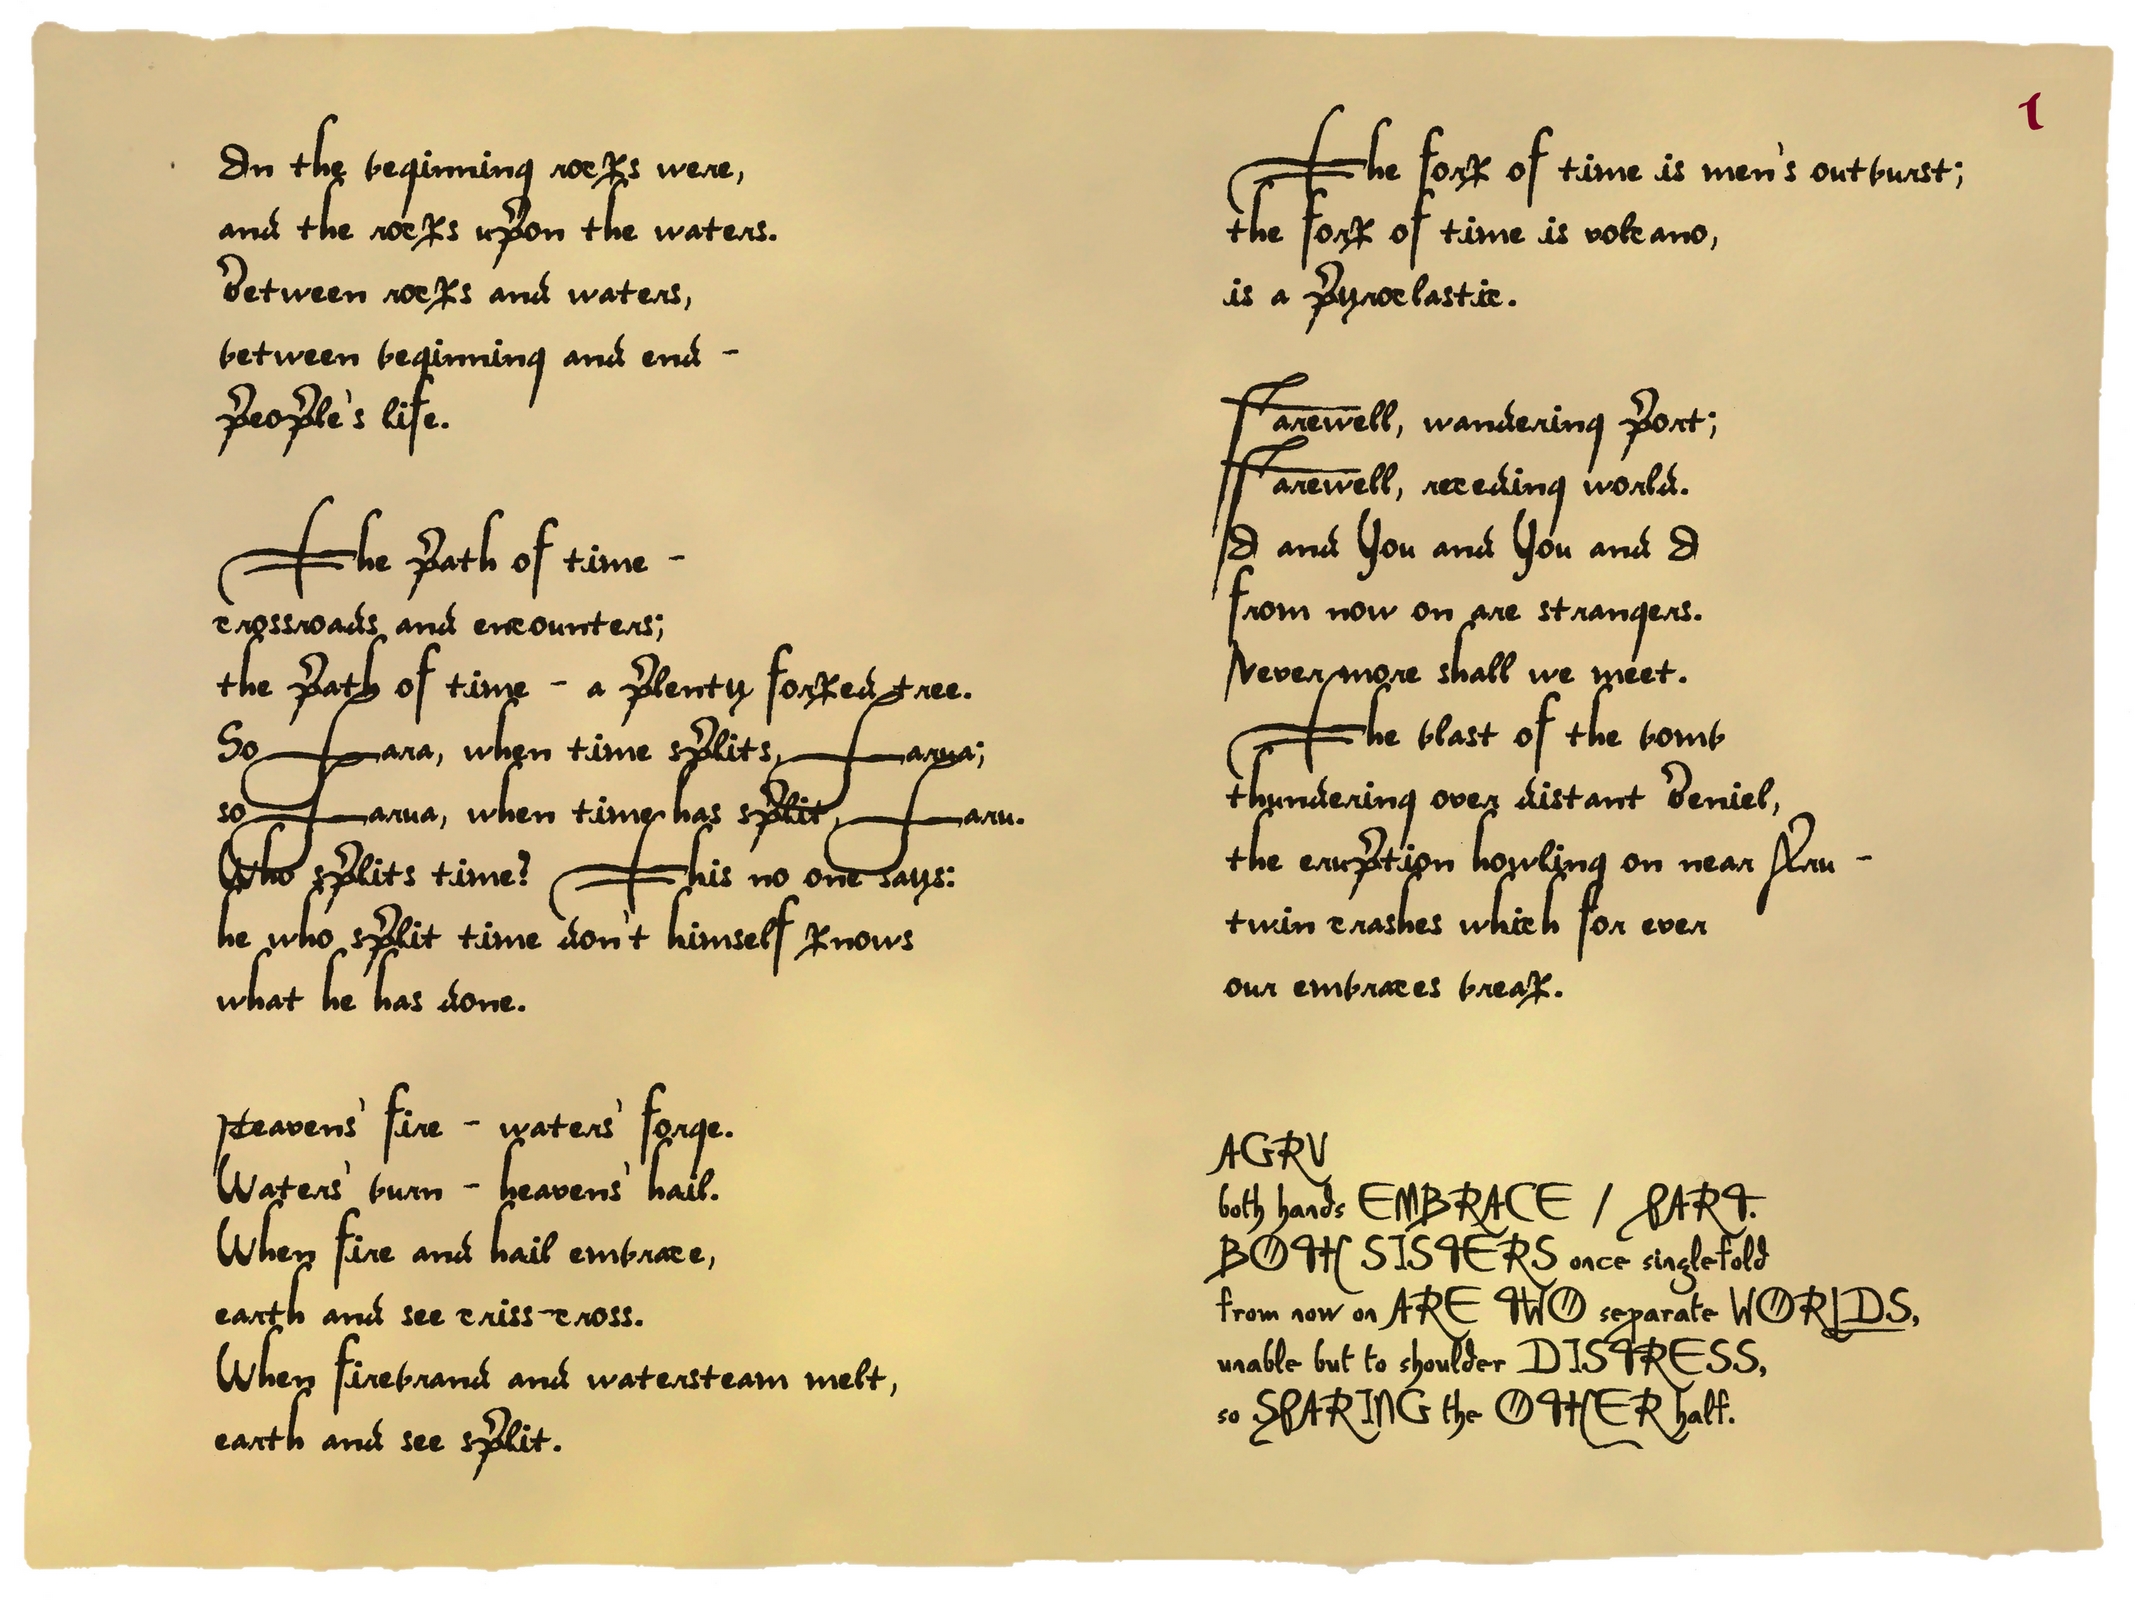 In the beginning rocks were,
and the rocks upon the waters.
Between rocks and waters,
between beginning and end -
people's life.
The path of time -
crossroads and encounters;
the path of time - a plenty forked tree.
So Lara, when time splits, Larua;
so Larua, when time has split, Laru.
Who splits time? This no one says:
he who split time don't himself knows
what he has done.
Heavens' fire - waters' forge.
Waters' burn - heavens' hail.
When fire and hail embrace,
earth and see criss-cross.
When firebrand and watersteam melt,
earth and see split.
1
The fork of time is men's outburst;
the fork of time is volcano,
is a pyroclastic.
Farewell, wandering port;
Farewell, receding world.
I and You and You and I
from now on are strangers.
Nevermore shall we meet.
The blast of the bomb
thundering over distant Beniel,
the eruption howling on near Aru -
twin crashes which for ever
our embraces break.
AGRV
both hands EMBRACE / PART.
BOTH SISTERS once singlefold
from now on ARE TWO separate WORLDS,
unable but to shoulder DISTRESS,
so SPARING the OTHER half.